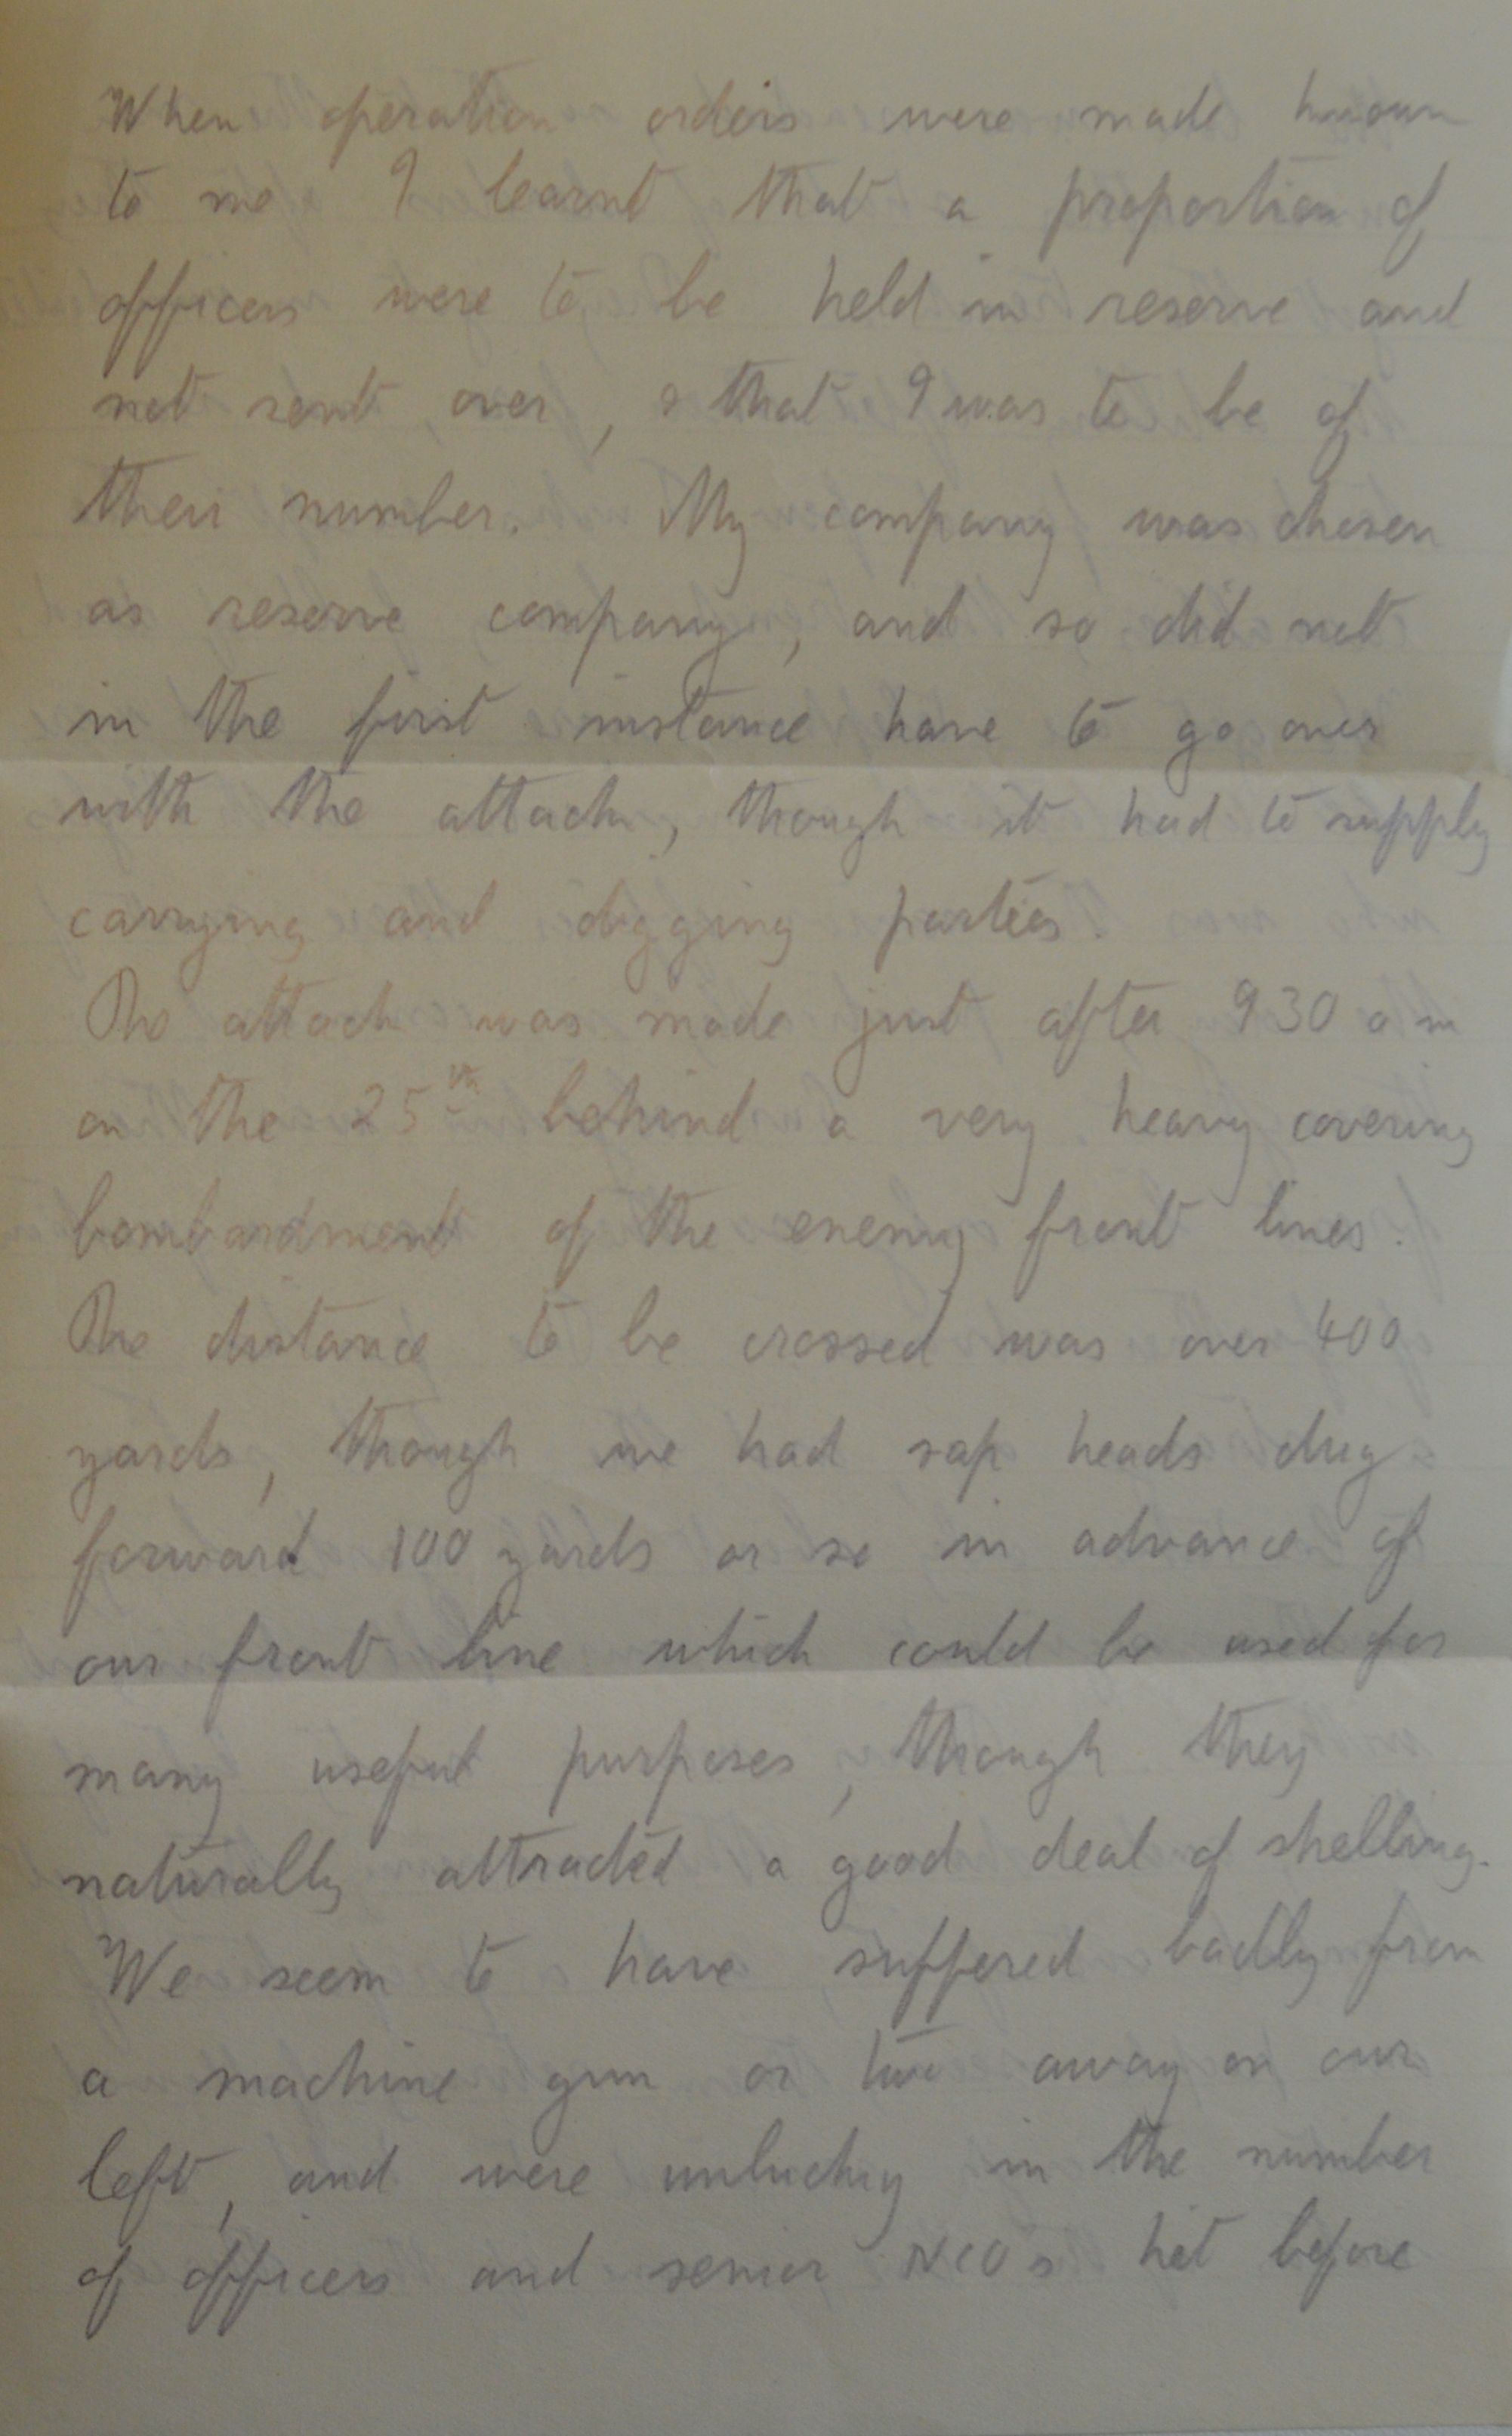 When operation orders were made known
to me I learnt that a proportion of
officers were to be held in reserve and
not sent over, & that I was to be of
their number. My company was chosen
as reserve company, and so did not
in the first instance have to go over
with the attack, though it had to supply
carrying and digging parties.
The attack was made just after 9 30 a m
on the 25th behind a very heavy covering
bombardment of the enemy front lines.
The distance to be crossed was over 400
yards, though we had sap heads dug
forward 100 yards or so in advance of
our front line which could be used for
many useful purposes, though they
naturally attracted a good deal of shelling.
We seem to have suffered badly from
a machine gun or two away on our
left, and were unlucky in the number
of officers and senior NCOs hit before